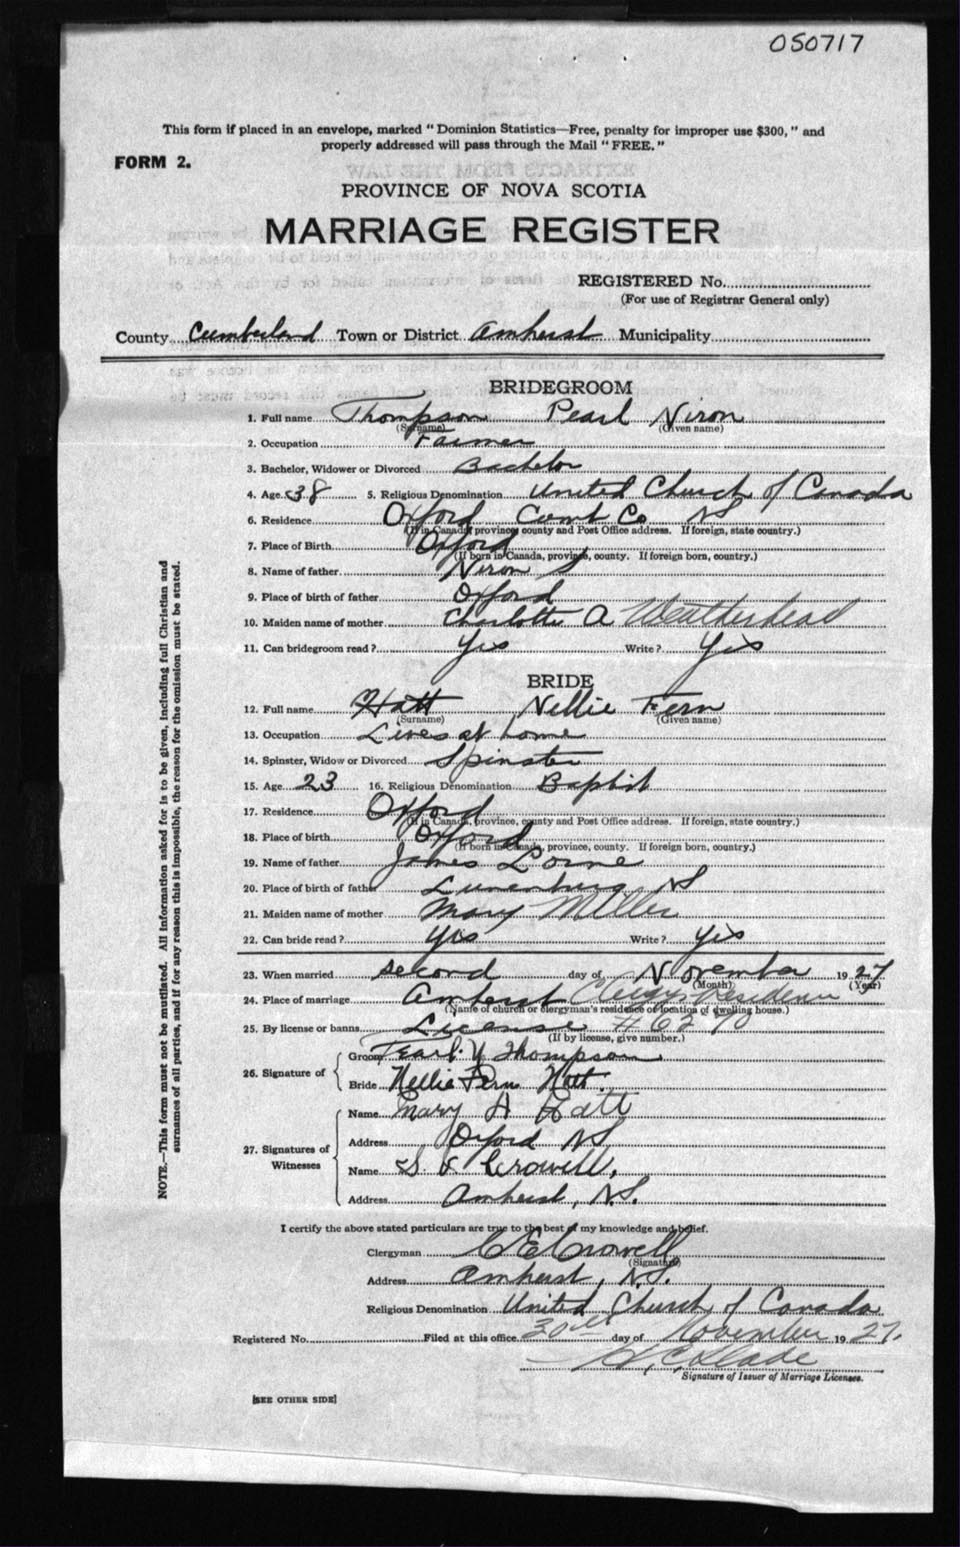 050717
This form if placed in an envelope, marked "Dominion Statistics—Free, penalty for improper use $300," and
properly addressed will pass through the Mail "FREE."
FORM 2.
PROVINCE OF NOVA SCOTIA
MARRIAGE REGISTER
REGISTERED No.
(For use of Registrar General only)
County Cumberland Town or District Amherst Municipality
BRIDEGROOM
1. Full name Thompson Pearl Niron
(Surname) (Given name)
2. Occupation Farmer
3. Bachelor, Widower or Divorced Bachelor
4. Age 38 5. Religious Denomination United Church of Canada
6. Residence Oxford Cumb Co NS
(If in Canada, province, county and Post Office address. If foreign, state country.)
7. Place of Birth Oxford
(If born in Canada, province, county. If foreign born, country.)
8. Name of father Niron S
9. Place of birth of father Oxford
10. Maiden name of mother Charlotte A Weatherhead
11. Can bridegroom read? Yes Write? Yes
BRIDE
12. Full name Hatt Nellie Fern
(Surname) (Given name)
13. Occupation Lives at home
14. Spinster, Widow or Divorced Spinster
15. Age 23 16. Religious Denomination Baptist
17. Residence Oxford
(If in Canada, province, county and Post Office address. If foreign, state country.)
18. Place of birth Oxford
(If born in Canada, province, county. If foreign born, country.)
19. Name of father James Lorne
20. Place of birth of father Lunenburg NS
21. Maiden name of mother Mary Miller
22. Can bride read? Yes Write? Yes
23. When married second day of November 1927
(Month) (Year)
24. Place of marriage Amherst Clergy's residence
(Name of church or clergyman's residence or location of dwelling house.)
25. By license or banns License # 6290
(If by license, give number.)
26. Signature of
Groom Pearl N Thompson
Bride Nellie Fern Hatt.
27. Signatures of Witnesses
Name Mary H Hatt
Address Oxford NS
Name S F Crowell,
Address Amherst, N.S.
I certify the above stated particulars are true to the best of my knowledge and belief.
Clergyman C E Crowell
(Signature)
Address Amherst, N.S.
Religious Denomination United Church of Canada
Registered No. Filed at this office 30th day of November 1927.
Signature of Issuer of Marriage Licenses.
[SEE OTHER SIDE]
NOTE.—This form must not be mutilated. All information asked for is to be given, including full Christian and
surnames of all parties, and if for any reason this is impossible, the reason for the omission must be stated.